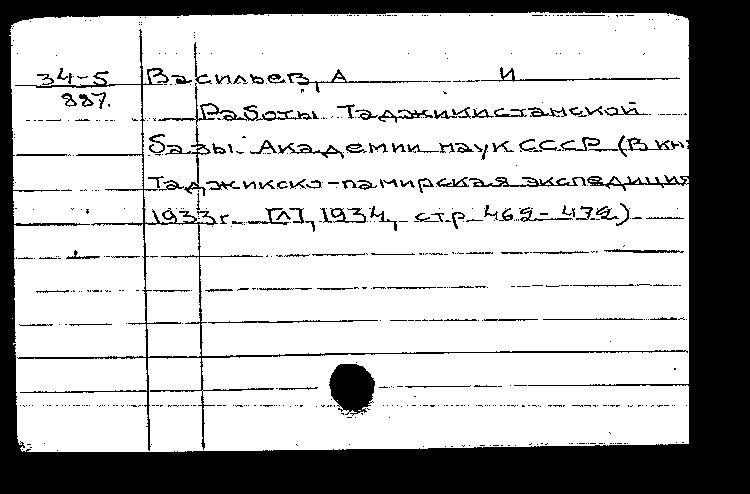 34-5 Васильев, А И
887. Работы Таджикистамской
базы Академии наук СССР (В кн:
Таджикско-памирская экспедиция
1933г. [Л], 1934, стр 469-479)